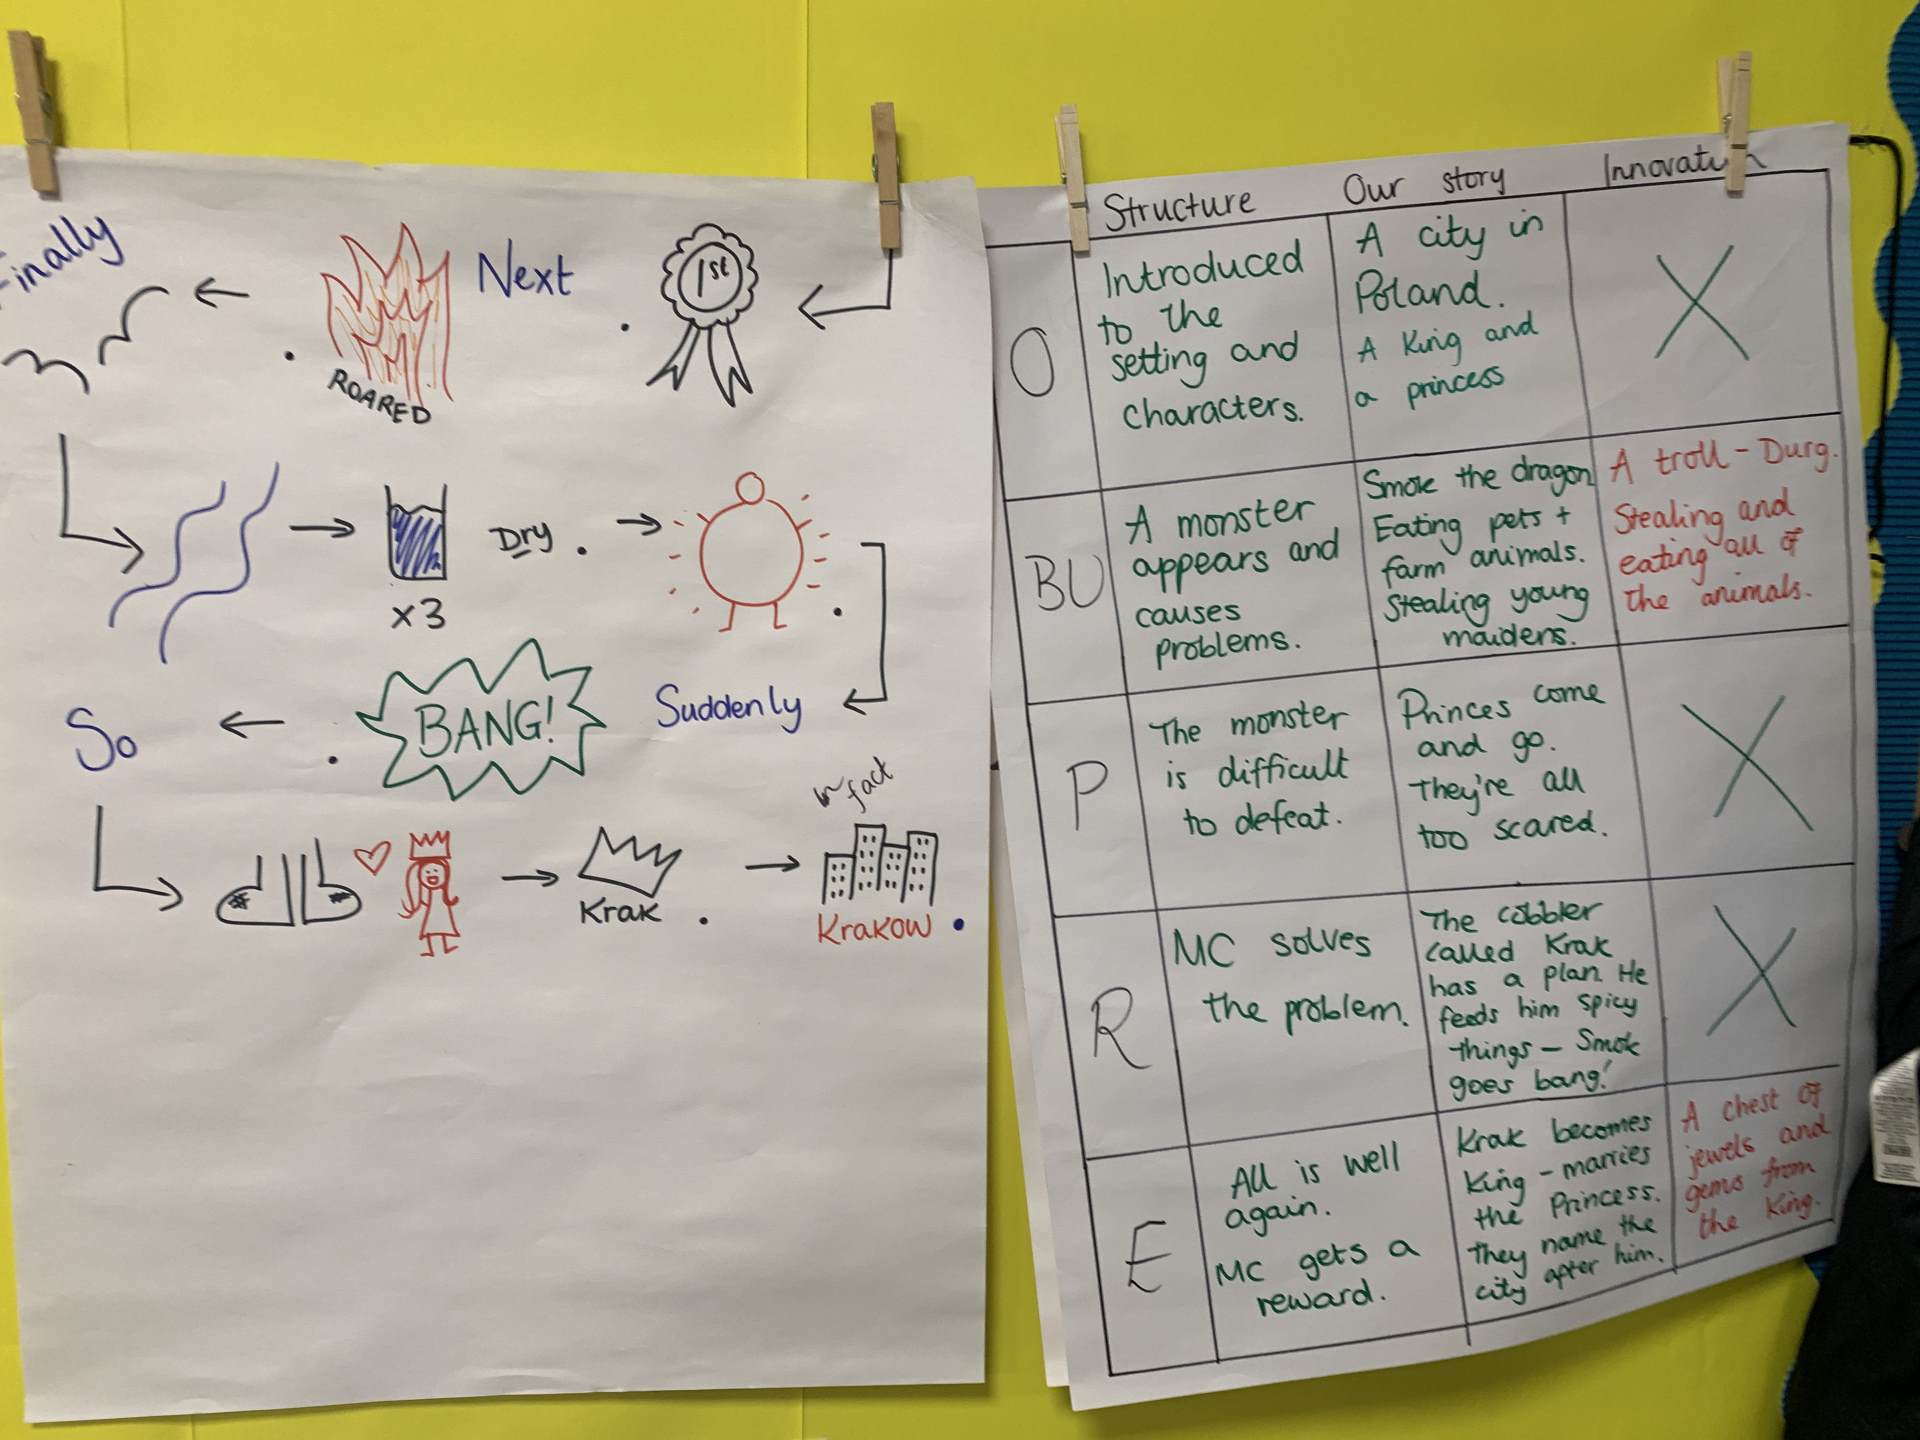 Finally
Next
1st
ROARED
Dry
x3
BANG!
Suddenly
So
In fact
Krak
Krakow
Structure
Our story
O
Introduced
to the
setting and
characters.
A city in
Poland.
A King and
a princess
BU
A monster
appears and
causes
problems.
Smok the dragon
Eating pets +
farm animals.
Stealing young
maidens.
A troll - Durg.
Stealing and
eating all of
the animals.
P
The monster
is difficult
to defeat.
Princes come
and go.
They're all
too scared.
R
MC solves
the problem.
The cobbler
called Krak
has a plan. He
feeds him spicy
things - Smok
goes bang!
E
All is well
again.
MC gets a
reward.
Krak becomes
King - marries
the Princess.
They name the
city after him.
A chest of
jewels and
gems from
the King.